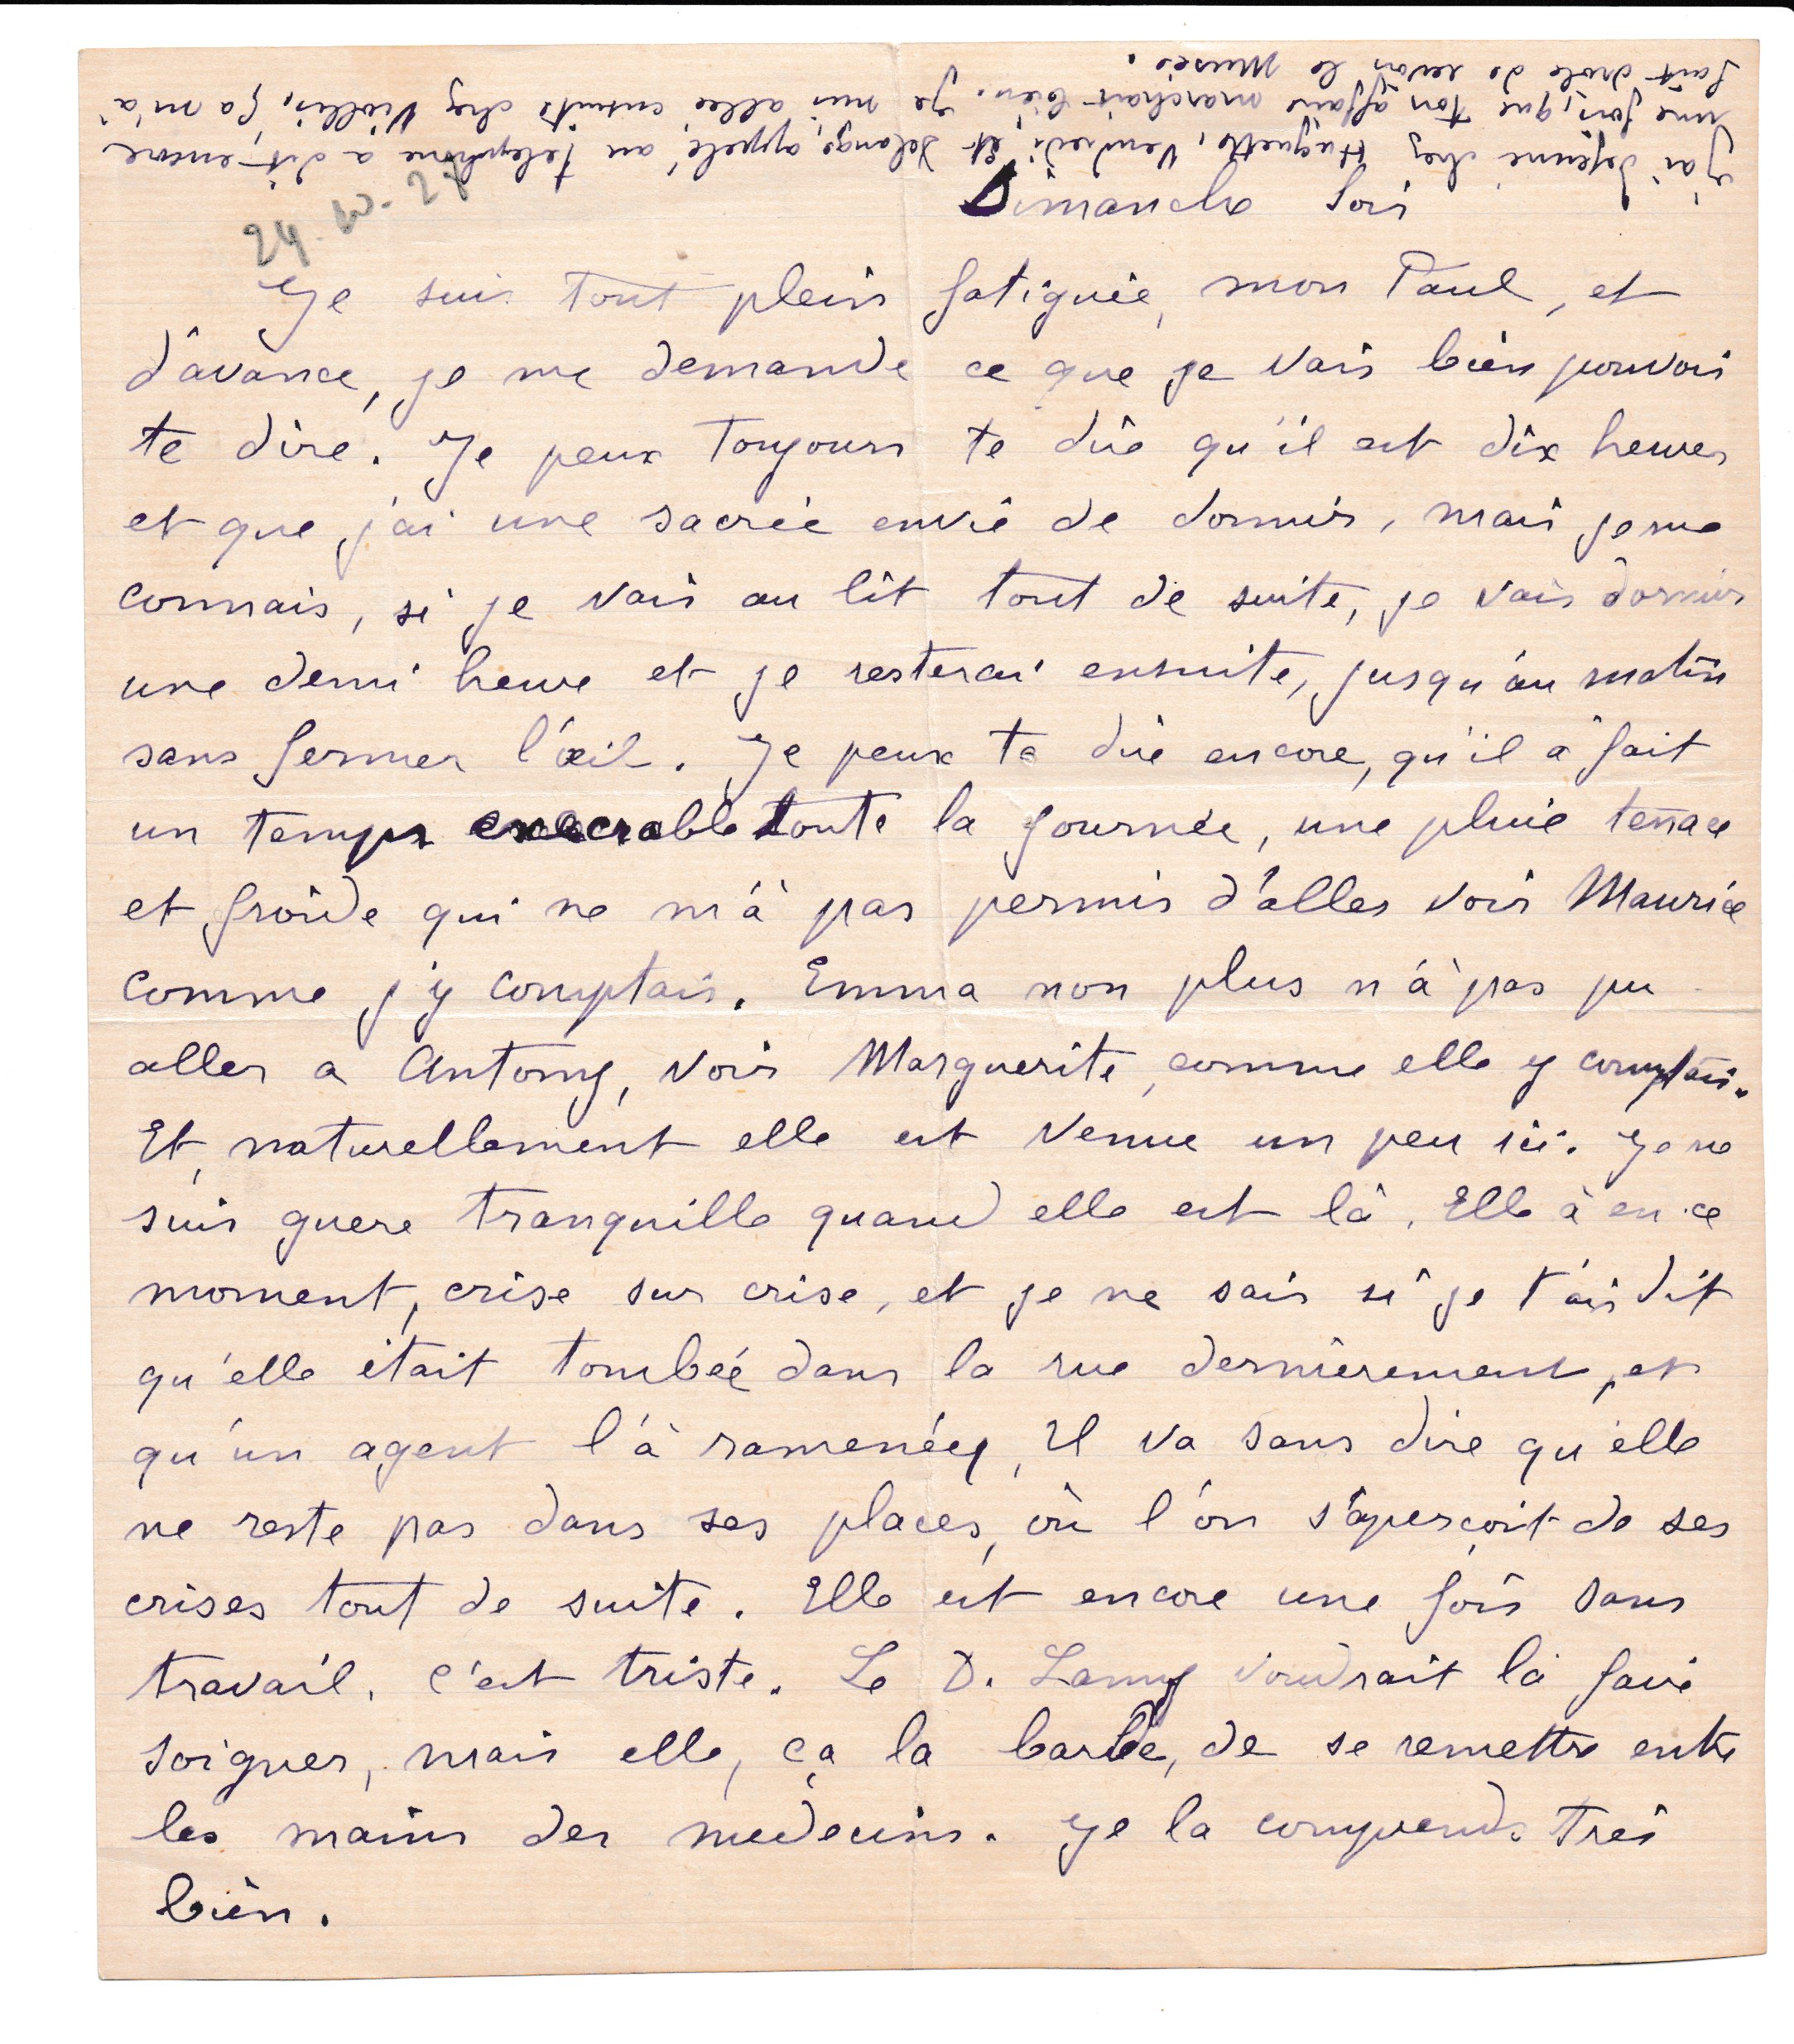 J'ai déjeuné chez Huguette, Vendredi, et Delange, appelé au telephone a dit encore
une fois, que ton affaire marchait bien. Je suis allée ensuite chez Viollis, ça m'a
fait drole de revoir le Musée.
Dimanche soir
Je suis tout plein fatiguée, mon Paul, et
d'avance, je me demande ce que je vais bien pouvoir
te dire. Je peux toujours te dire qu'il est dix heures
et que j'ai une sacrée envie de dormir, mais je me
connais, si je vais au lit tout de suite, je vais dormir
une demi heure et je resterai ensuite, jusqu'au matin
sans fermer l'œil. Je peux te dire encore, qu'il a fait
un temps execrable toute la journée, une pluie tenace
et froide qui ne m'a pas permis d'aller voir Maurice
comme j'y comptais. Emma non plus n'a pas pu
aller a Antony, voir Marguerite, comme elle y comptais.
Et, naturellement elle est venue un peu ici. Je ne
suis guere tranquille quand elle est là. Elle a en ce
moment, crise sur crise, et je ne sais si je t'ais dit
qu'elle était tombée dans la rue dernièrement, et
qu'un agent l'a ramenée, Il va sans dire qu'elle
ne reste pas dans ses places, où l'on s'aperçoit de ses
crises tout de suite. Elle est encore une fois sans
travail. C'est triste. Le D. Lamy voudrait la faire
soigner, mais elle, ça la barbe, de se remettre entre
les mains des medecins. Je la comprends très
bien.